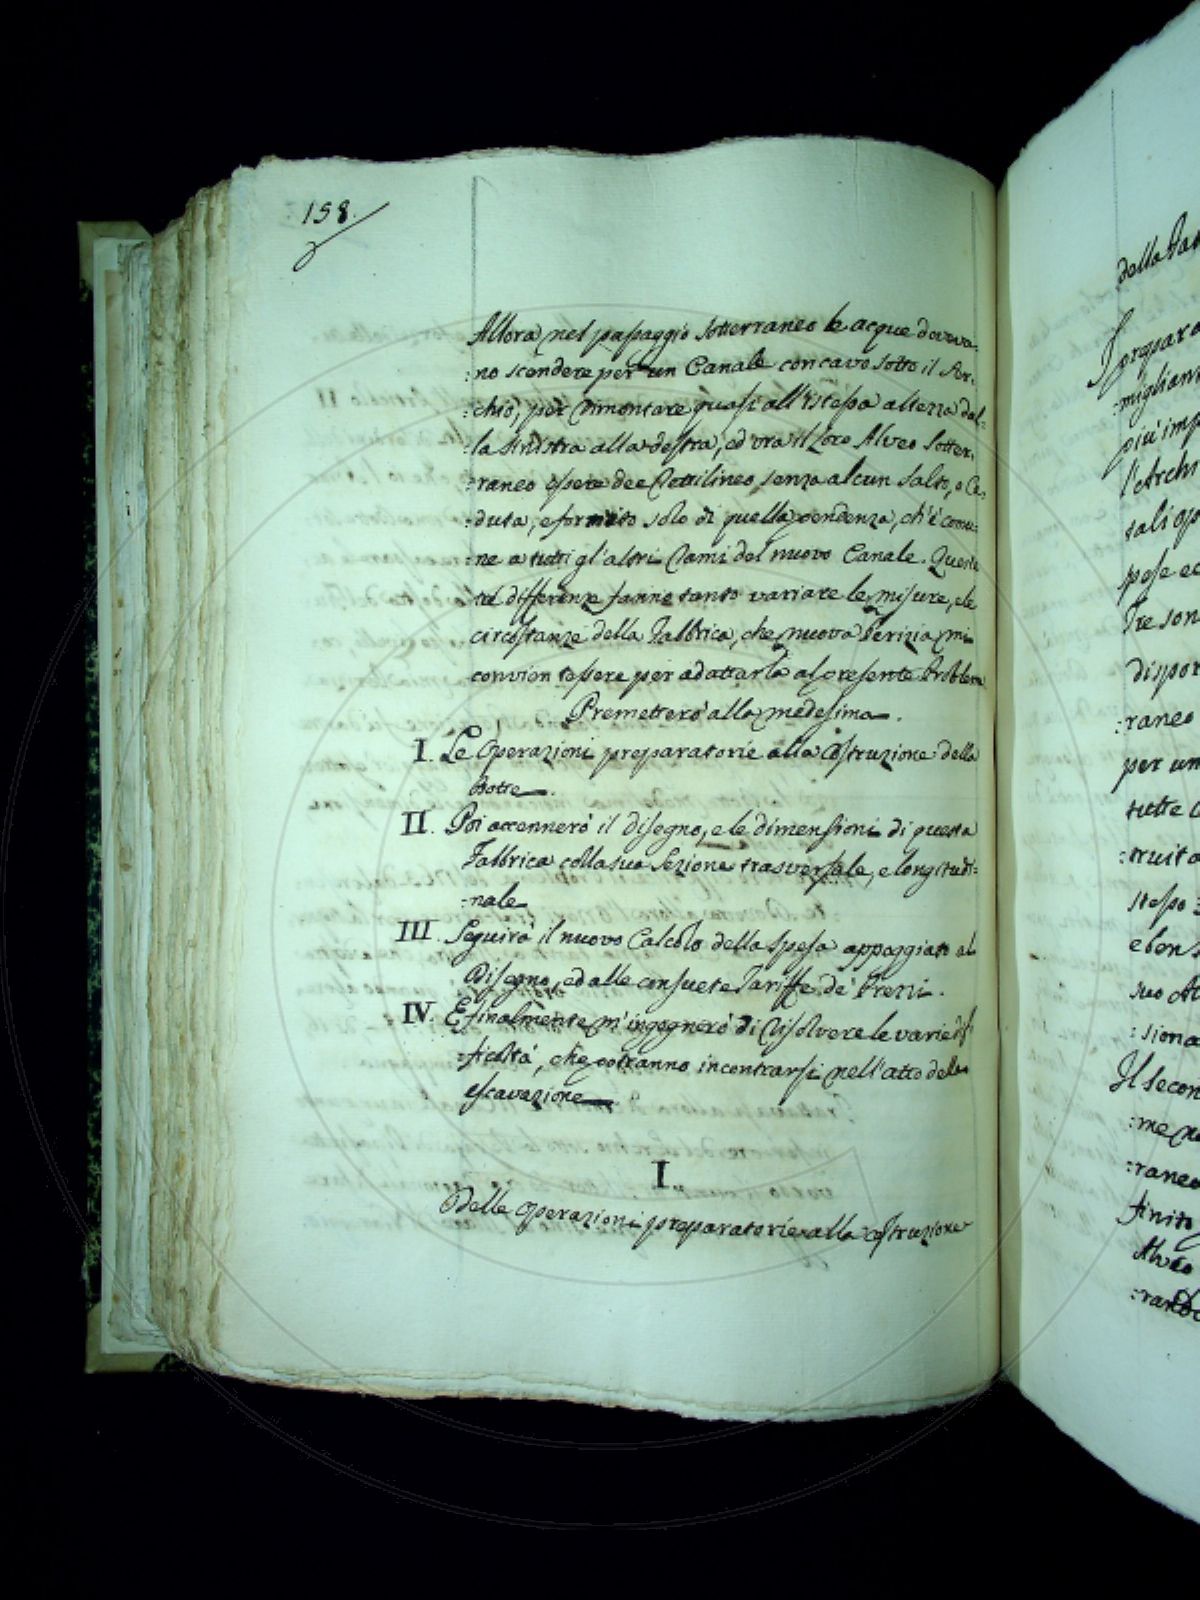 158.
Allora nel passaggio sotterraneo le acque doveva:
:no scendere per un Canale concavo sotto il Ser:
:chio, per rimontare quasi all'istessa altezza dal:
:la sinistra alla destra, ed ora il loro Alveo Sotter:
:raneo essere dee rettilineo senza alcun salto, o Ca:
:duta, e fornito solo di quella pendenza, ch'è comu:
:ne a tutti gl'altri rami del nuovo Canale. Queste
tai differenze fanno tanto variare le misure, e le
circostanze della Fabbrica, che nuova Perizia mi
convien tessere per adattarla al presente Problema
Premetterò alla medesima.
I. Le Operazioni preparatorie alla costruzione della
Botte.
II. Poi accennerò il disegno, e le dimensioni di questa
Fabbrica colla sua Sezione trasversale, e longitudi:
:nale
III. Seguirà il nuovo Calcolo della spesa appoggiato al
Disegno, ed alle consuete Tariffe de' Prezzi.
IV. E finalmente m'ingegnerò di risolvere le varie dif:
:ficoltà, che potranno incontrarsi nell'atto della
escavazione.
I.
Delle operazioni preparatorie alla costruzione
della
migliani
più imp
l'Archi
tali op
pese ec
Tre son
dispor
:raneo
per un
tutte
:truit
stesso
e con
suo
:siona
Il Secon
:me
:raneo
finito
Alveo